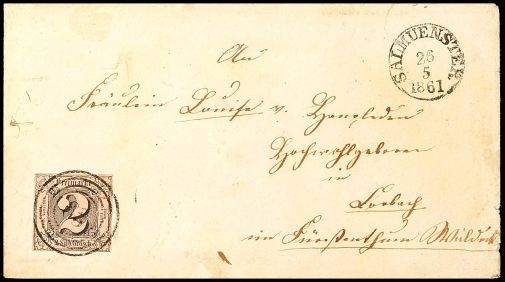 SALMUENSTER
26
5
1861
An
Fräulein Louise v. Hanxleden
Hochwohlgeboren
in
Lorbach
im Fürstenthum Waldeck
2